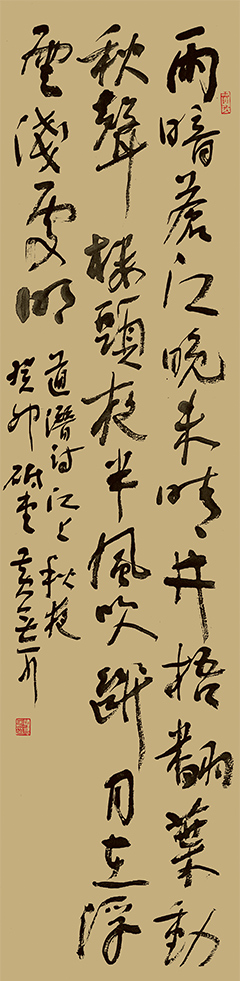 雨暗蒼江晚未晴井梧翻葉動
秋聲樓頭夜半風吹斷月在浮
雲淺處明
道潛詩江上秋夜
癸卯